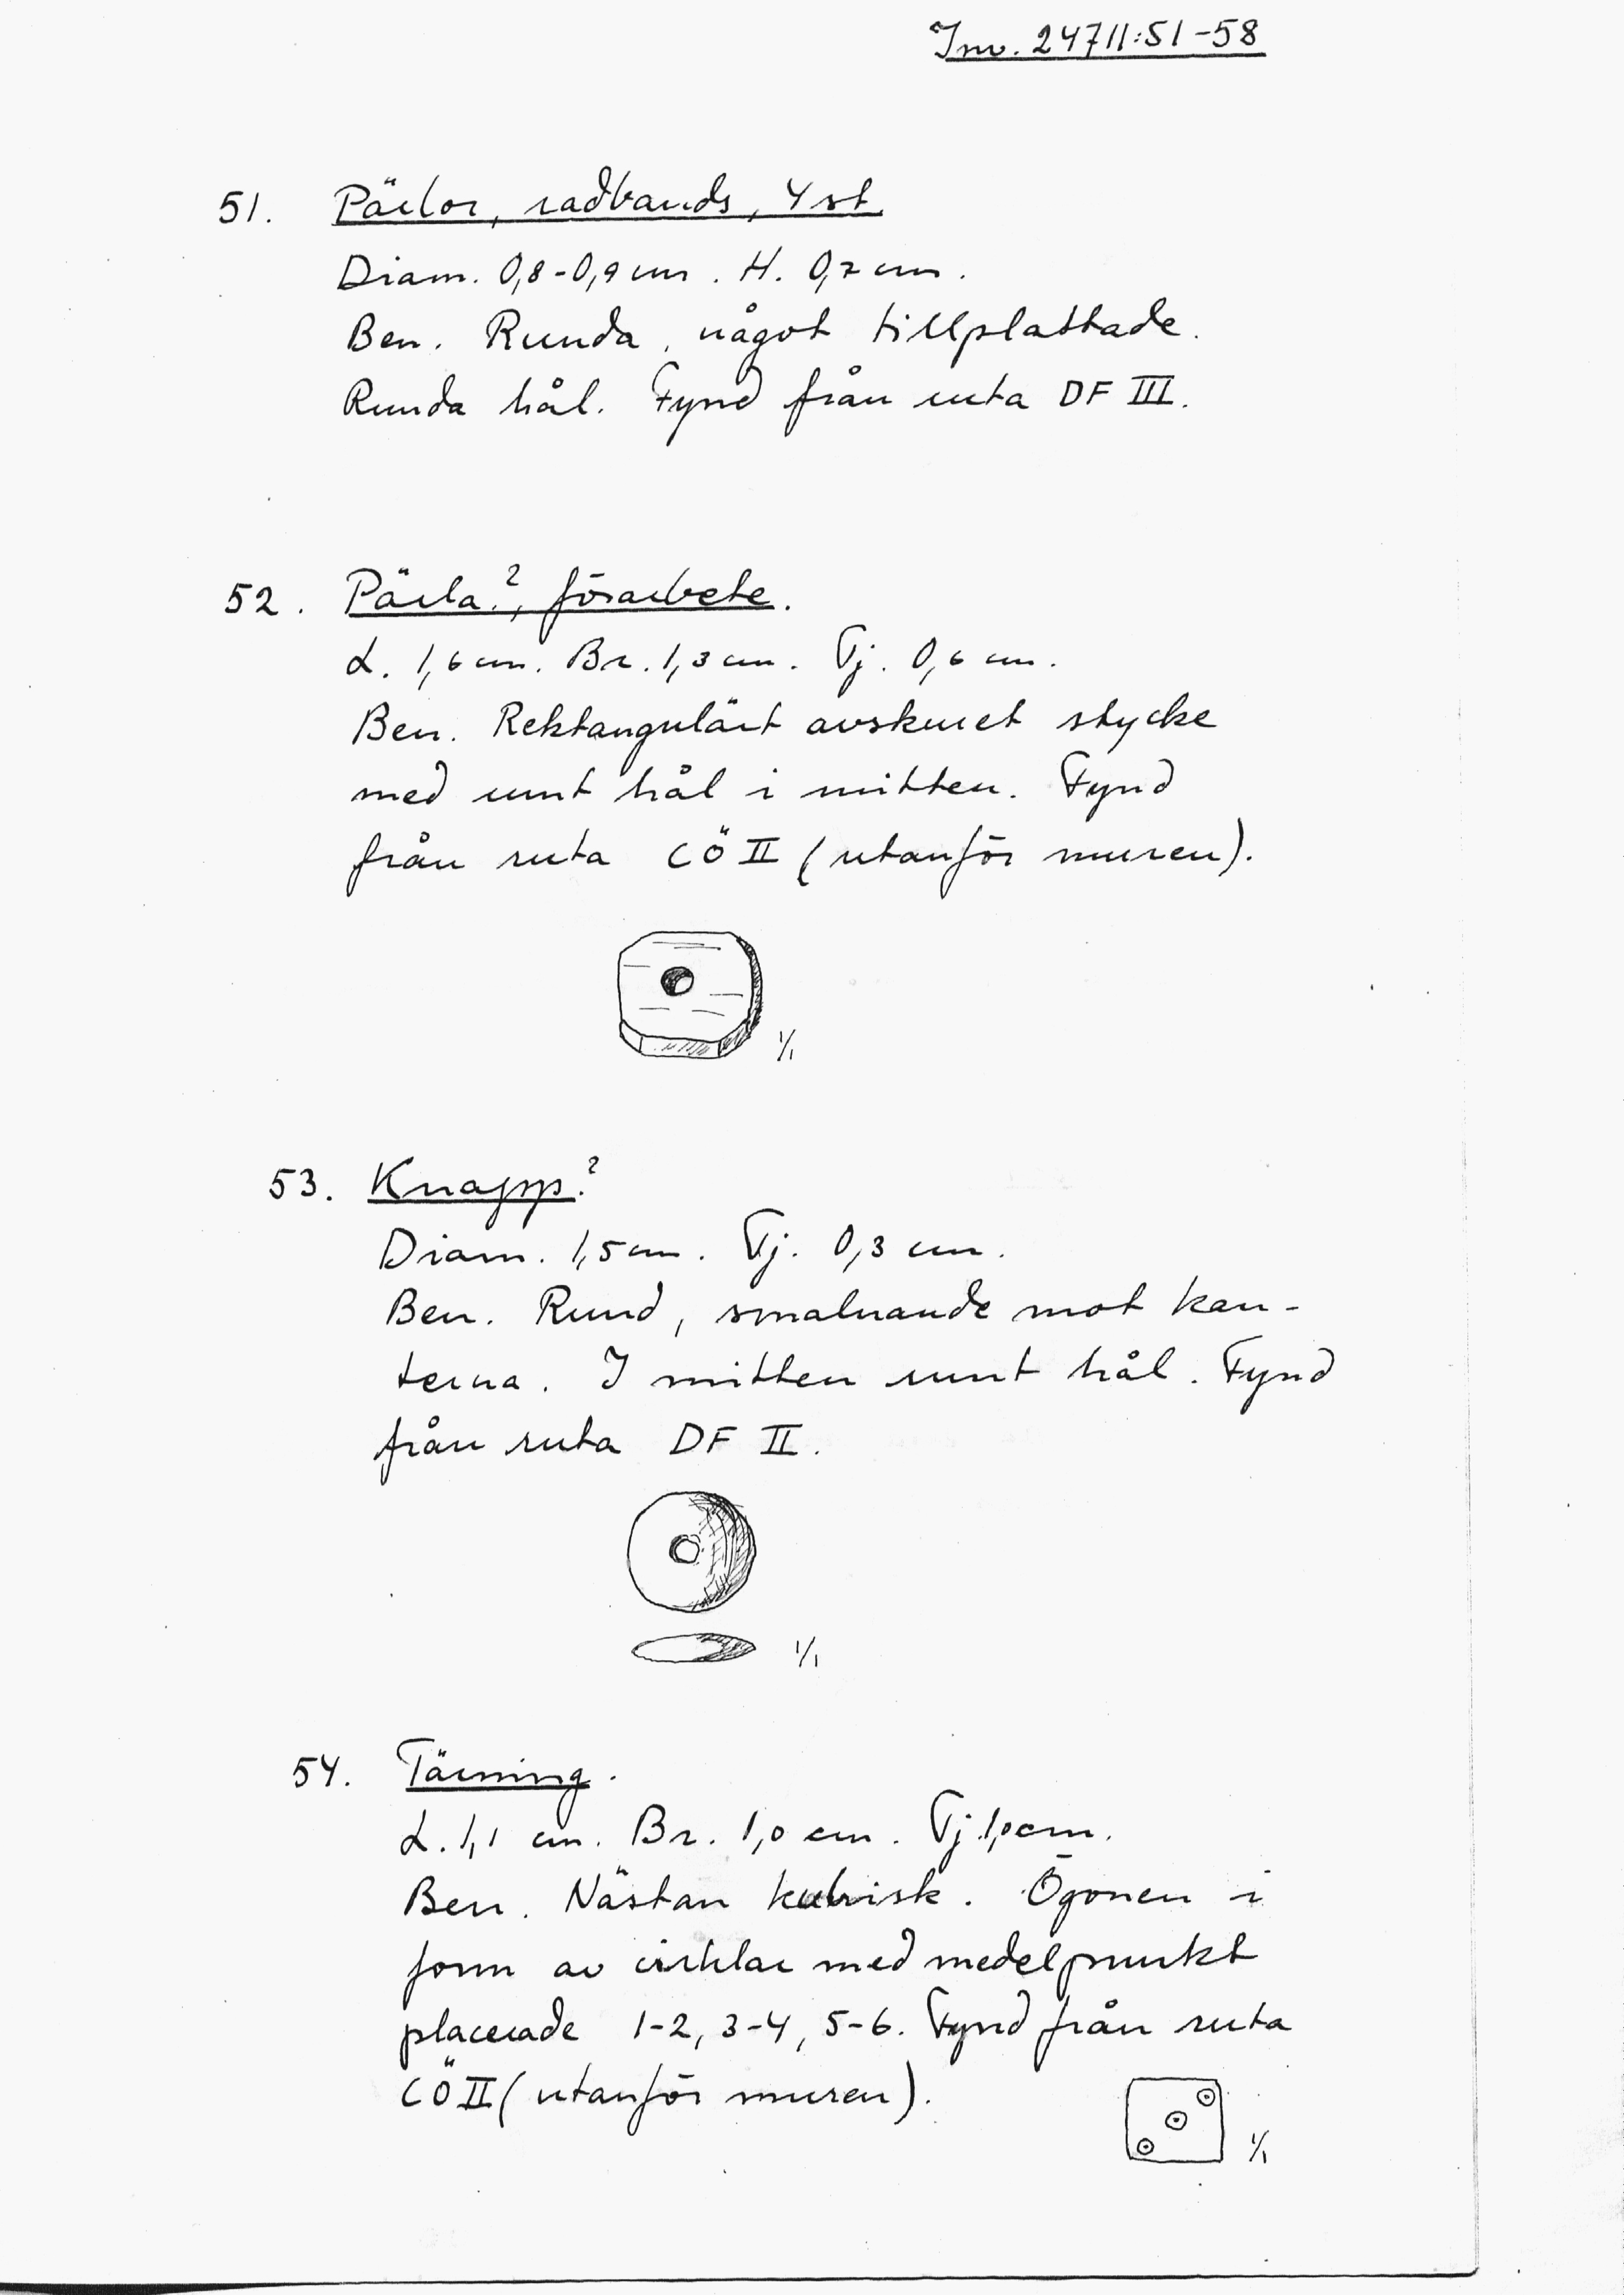 Inv. 24711:51-58
51. Pärlor, radbands, 4 st.
Diam. 0,8-0,9 cm. H. 0,7 cm.
Ben. Runda, något tillplattade.
Runda hål. Fynd från ruta DF III.
52. Pärla?, förarbete.
L. 1,6 cm. Br. 1,3 cm. Tj. 0,6 cm.
Ben. Rektangulärt avskuret stycke
med runt hål i mitten. Fynd
från ruta CÖ II (utanför muren).
1/1
53. Knapp?
Diam. 1,5 cm. Tj. 0,3 cm.
Ben. Rund, smalnande mot kan-
terna. I mitten runt hål. Fynd
från ruta DF II.
1/1
54. Tärning.
L. 1,1 cm. Br. 1,0 cm. Tj. 1,0 cm.
Ben. Nästan kubisk. Ögonen i
form av cirklar med medelpunkt
placerade 1-2, 3-4, 5-6. Fynd från ruta
CÖ II (utanför muren).
1/1